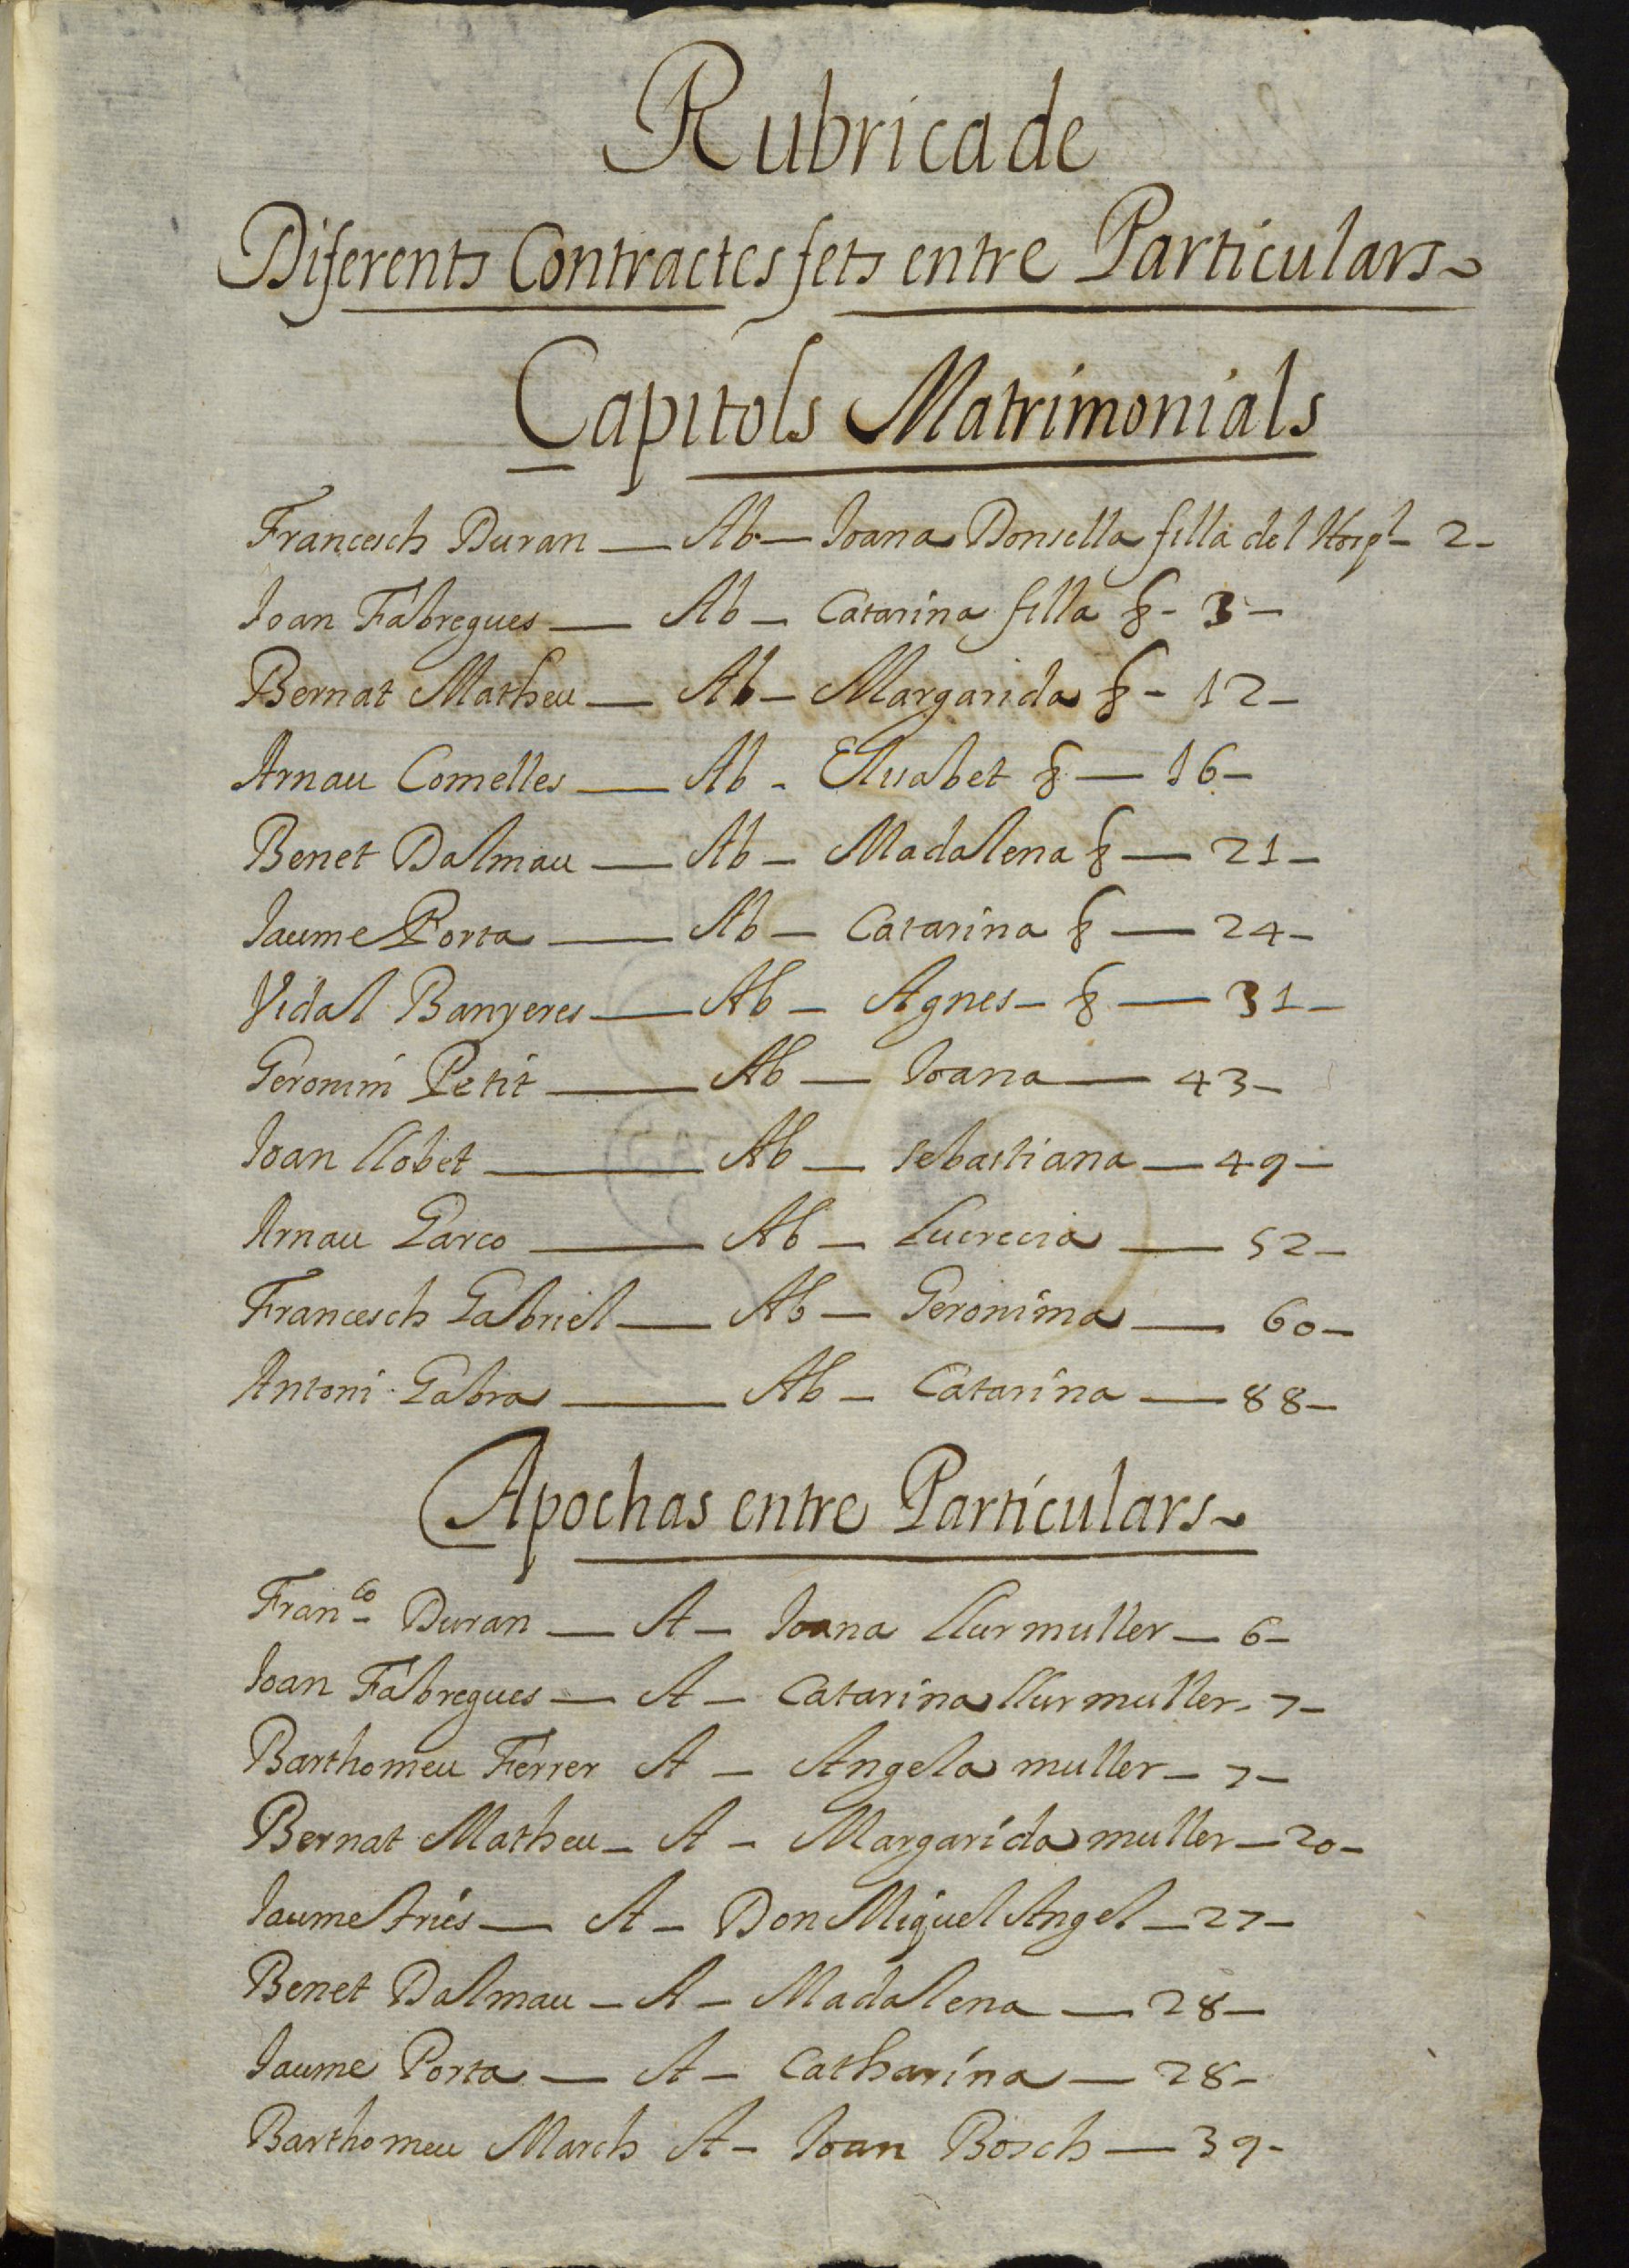 Rubrica de
Diferents Contractes fets entre Particulars
Capitols Matrimonials
Francesch Duran — Ab — Ioana Donsella filla del Hospl - 2 -
Ioan Fabregues — Ab — Catarina filla - 3 -
Bernat Matheu — Ab — Margarida - 12 -
Arnau Comelles — Ab - Elisabet — 16 -
Benet Dalmau — Ab — Madalena — 21 -
Iaume Porta — Ab — Catarina — 24 -
Vidal Banyeres — Ab — Agnes - — 31 -
Geronim Petit — Ab — Ioana — 43 -
Ioan Llobet — Ab — Sebastiana — 49 -
Arnau Garco — Ab — Lucrecia — 52 -
Francesch Gabriel — Ab — Geronima — 60 -
Antoni Gabra — Ab — Catarina — 88 -
Apochas entre Particulars
Franco Duran — A — Ioana llur muller — 6 -
Ioan Fabregues — A — Catarina llur muller - 7 -
Barthomeu Ferrer A — Angela muller — 7 -
Bernat Matheu - A - Margarida muller — 20 -
Iaume Aries — A — Don Miquel Angel — 27 -
Benet Dalmau - A - Madalena — 28 -
Iaume Porta — A — Catharina — 28 -
Barthomeu March A - Ioan Bosch — 39 -